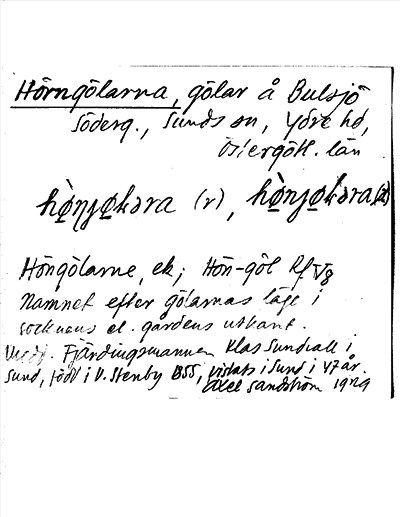 Hörngölarna, gölar å Bulsjö
Söderg., Sunds sn, Ydre hd,
Östergötl. län
(r),
Höngölarne, ek; Hön-göl Rf
Namnet efter gölarnas läge i
socknens el. gårdens utkant.
Medd. Fjärdingsmannen Klas Sundvall i
Sund, född i V. Stenby 1855, vistats i Sund i 47 år.
Axel Sandström 1929